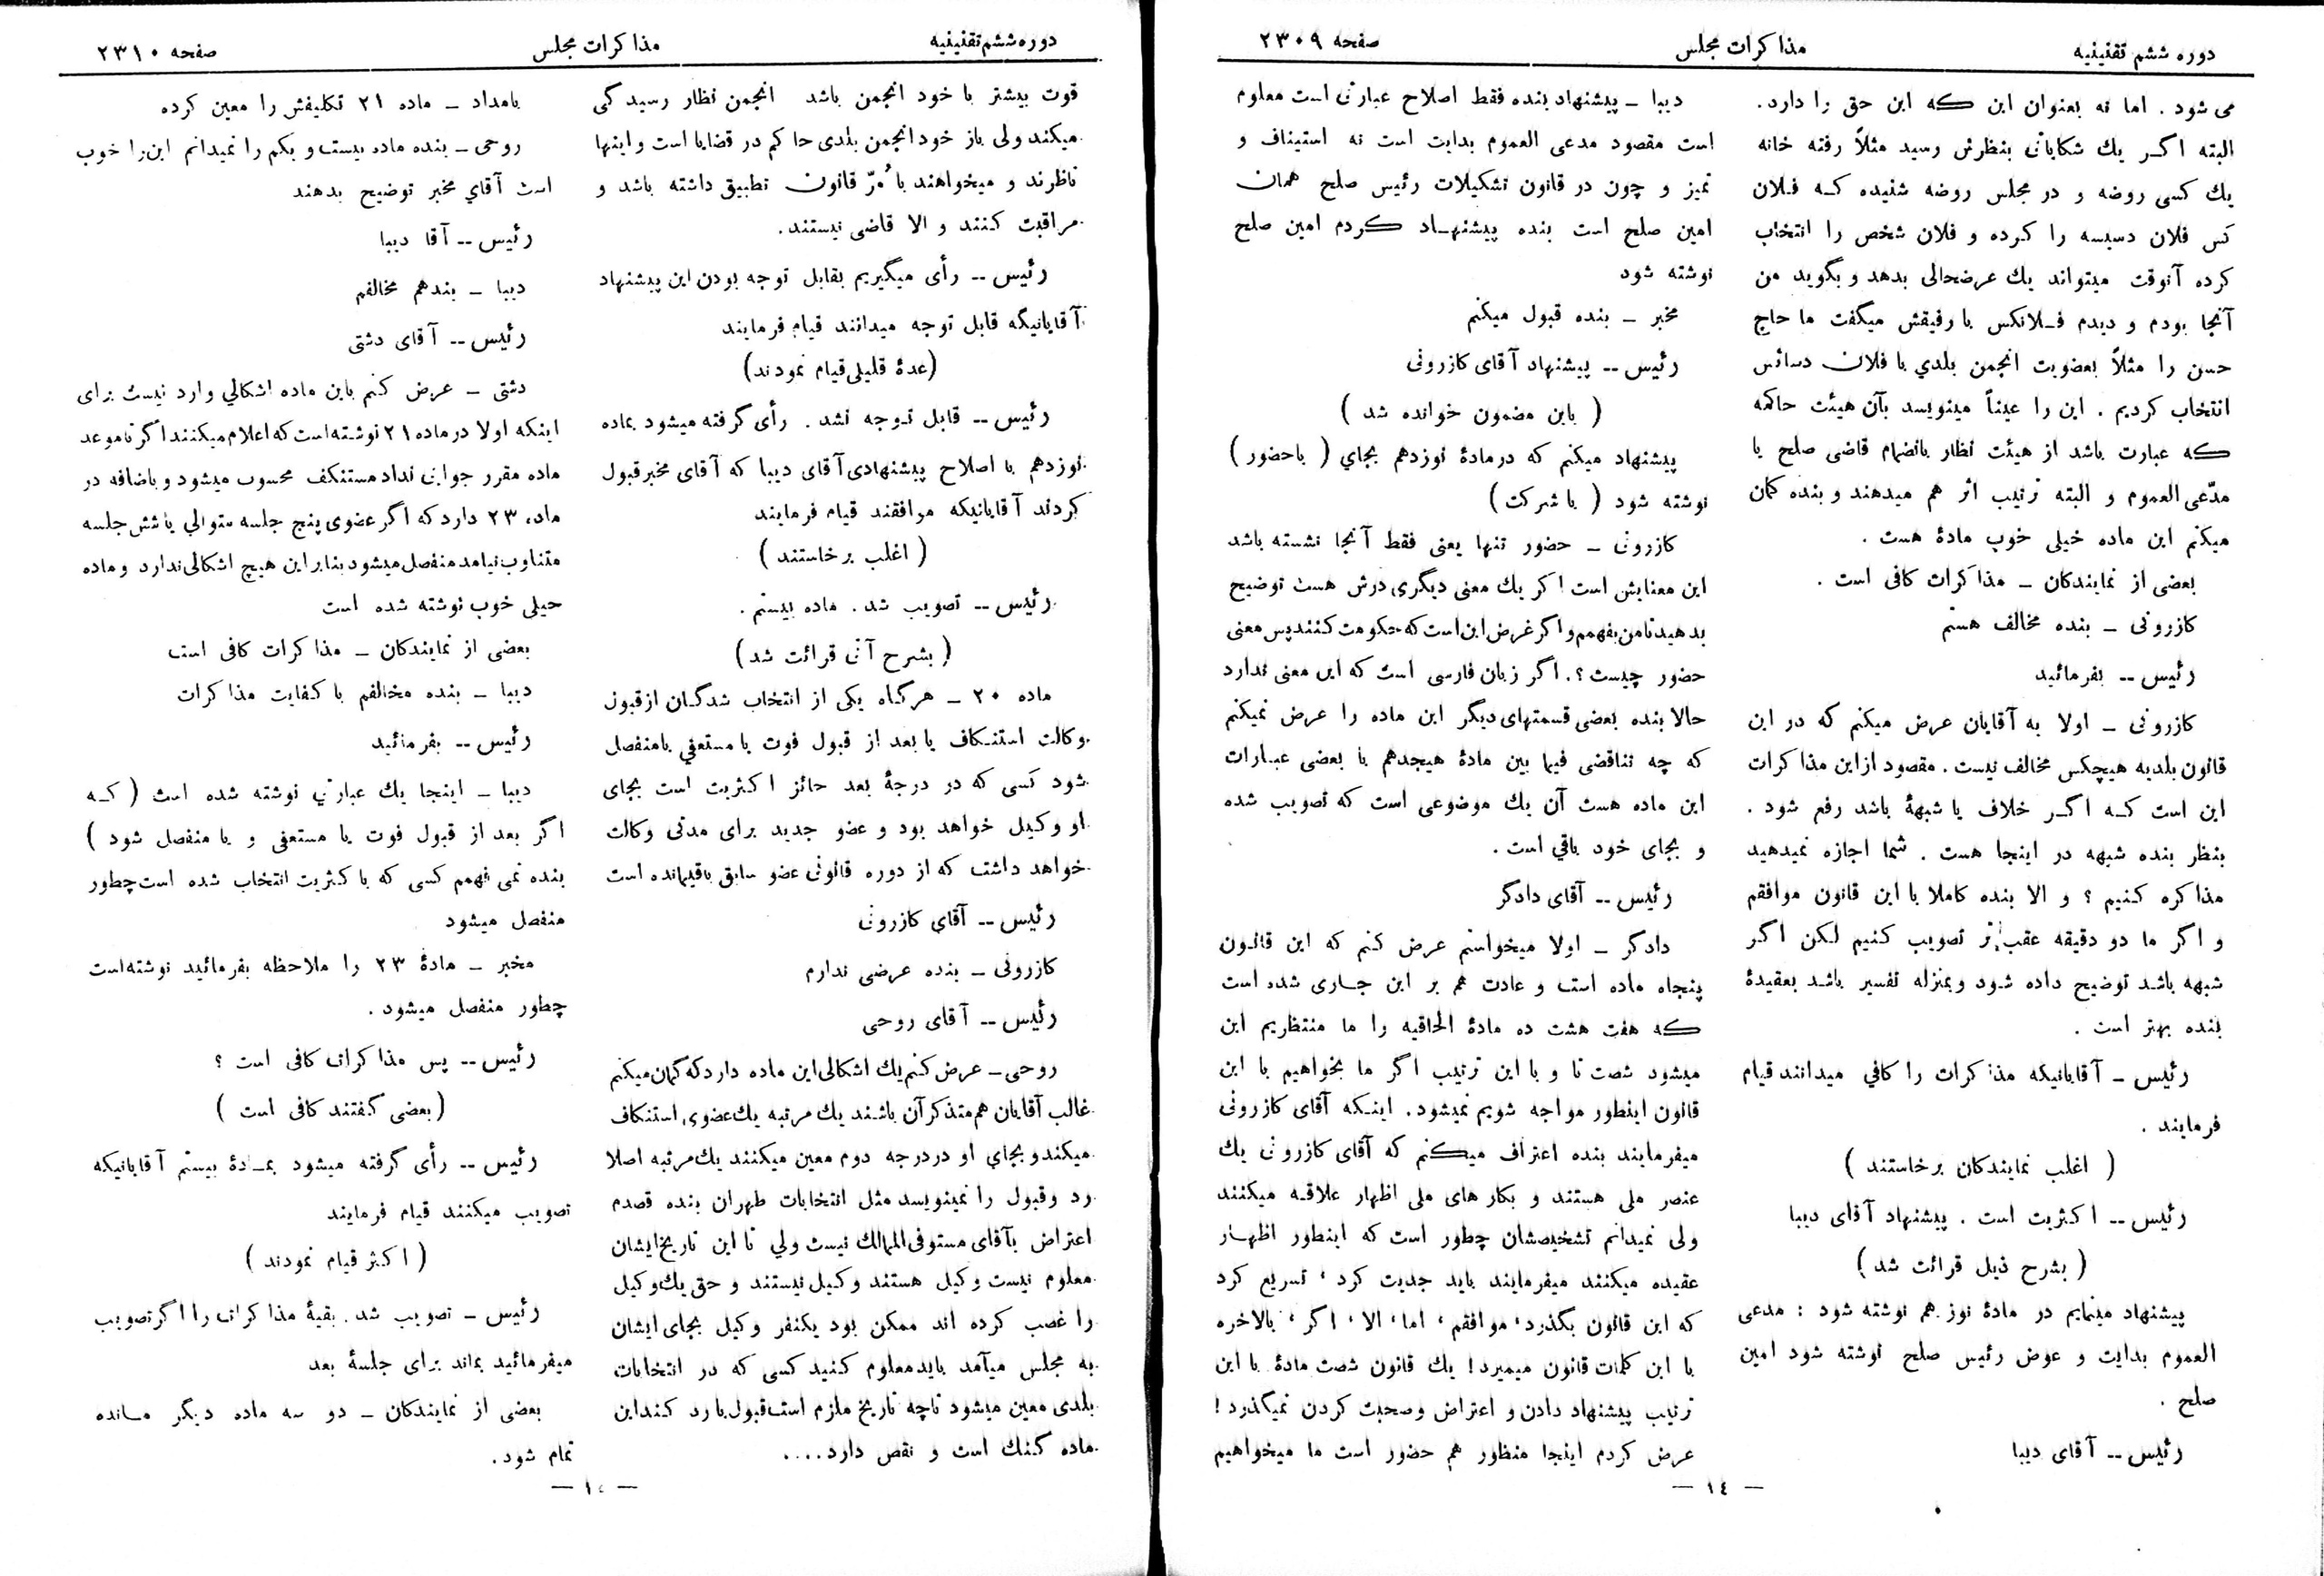 دوره ششم تقنینیه
مذاکرات مجلس
صفحه ۲۳۰۹
می شود . اما نه بعنوان این که این حق را دارد.
البته اگر یك شکایاتی بنظرش رسید مثلاً رفته خانه
یك کسی روضه و در مجلس روضه شنیده که فلان
کس فلان دسیسه را کرده و فلان شخص را انتخاب
کرده آنوقت میتواند یك عرضحالی بدهد و بگوید من
آنجا بودم و دیدم فلانکس با رفیقش میگفت ما حاج
حسن را مثلاً بعضویت انجمن بلدي با فلان دسائس
انتخاب کردیم . این را عیناً مینویسد بآن هیئت حاکمه
که عبارت باشد از هیئت نظار بانضمام قاضی صلح یا
مدّعی العموم و البته ترتیب اثر هم میدهند و بنده گمان
میکنم این ماده خیلی خوب مادهٔ هست .
بعضی از نمایندگان ــ مذاکرات کافی است .
کازرونی ــ بنده مخالف هستم
رئیس -- بفرمائید
کازرونی ــ اولا به آقایان عرض میکنم که در این
قانون بلدیه هیچکس مخالف نیست . مقصود از این مذاکرات
این است که اگر خلاف یا شبههٔ باشد رفع شود .
بنظر بنده شبهه در اینجا هست . شما اجازه نمیدهید
مذاکره کنیم ؟ و الا بنده کاملا با این قانون موافقم
و اگر ما دو دقیقه عقب تر تصویب کنیم لکن اگر
شبهه باشد توضیح داده شود و بمنزله تفسیر باشد بعقیدهٔ
بنده بهتر است .
رئیس ــ آقایانیکه مذاکرات را کافی میدانند قیام
فرمایند .
( اغلب نمایندگان برخاستند )
رئیس -- اکثریت است . پیشنهاد آقای دیبا
( بشرح ذیل قرائت شد )
پیشنهاد مینمایم در مادهٔ نوزدهم نوشته شود : مدعی
العموم بدایت و عوض رئیس صلح نوشته شود امین
صلح .
رئیس -- آقای دیبا
دیبا ــ پیشنهاد بنده فقط اصلاح عبارتی است معلوم
است مقصود مدعی العموم بدایت است نه استیناف و
تمیز و چون در قانون تشکیلات رئیس صلح همان
امین صلح است بنده پیشنهاد کردم امین صلح
نوشته شود
مخبر ــ بنده قبول میکنم
رئیس -- پیشنهاد آقای کازرونی
( باین مضمون خوانده شد )
پیشنهاد میکنم که در مادهٔ نوزدهم بجاي ( باحضور )
نوشته شود ( با شرکت )
کازرونی ــ حضور تنها یعنی فقط آنجا نشسته باشد
این معنایش است اگر یك معنی دیگری درش هست توضیح
بدهید تا من بفهمم و اگر غرض این است که حکومت کنند پس معنی
حضور چیست ؟ . اگر زبان فارسی است که این معنی ندارد
حالا بنده بعضی قسمتهای دیگر این ماده را عرض نمیکنم
که چه تناقضی فیما بین مادهٔ هیجدهم با بعضی عبارات
این ماده هست آن یك موضوعی است که تصویب شده
و بجای خود باقي است .
رئیس -- آقای دادگر
دادگر ــ اولا میخواستم عرض کنم که این قانون
پنجاه ماده است و عادت هم بر این جاری شده است
که هفت هشت ده مادهٔ الحاقیه را ما منتظریم این
میشود شصت تا و با این ترتیب اگر ما بخواهیم با این
قانون اینطور مواجه شویم نمیشود. اینکه آقای کازرونی
میفرمایند بنده اعتراف میکنم که آقای کازرونی یك
عنصر ملی هستند و بکار های ملی اظهار علاقه میکنند
ولی نمیدانم تشخیصشان چطور است که اینطور اظهار
عقیده میکنند میفرمایند باید جدیت کرد ، تسریع کرد
که این قانون بگذرد، موافقم، اما، الا، اگر، بالاخره
با این کلمات قانون میمیرد! یك قانون شصت مادهٔ با این
ترتیب پیشنهاد دادن و اعتراض و صحبت کردن نمیگذرد !
عرض کردم اینجا منظور هم حضور است ما میخواهیم
— ١٤ —
دوره ششم تقنینیه
مذاکرات مجلس
صفحه ۲۳۱۰
قوت بیشتر با خود انجمن باشد انجمن نظار رسیدگی
میکند ولی باز خود انجمن بلدی حاکم در قضایا است و اینها
ناظرند و میخواهند با مُرّ قانون تطبیق داشته باشد و
مراقبت کنند و الا قاضی نیستند.
رئیس -- رأی میگیریم بقابل توجه بودن این پیشنهاد
آقایانیکه قابل توجه میدانند قیام فرمایند
(عدهٔ قلیلی قیام نمودند)
رئیس -- قابل توجه نشد . رأی گرفته میشود بماده
نوزدهم با اصلاح پیشنهادی آقای دیبا که آقای مخبر قبول
کردند آقایانیکه موافقند قیام فرمایند
( اغلب برخاستند )
رئیس -- تصویب شد . ماده بیستم .
( بشرح آتی قرائت شد )
ماده ۲۰ ــ هرگاه یکی از انتخاب شدگان از قبول
وکالت استنکاف یا بعد از قبول فوت یا مستعفي یا منفصل
شود کسی که در درجهٔ بعد حائز اکثریت است بجای
او وکیل خواهد بود و عضو جدید برای مدتی وکالت
خواهد داشت که از دوره قانونی عضو سابق باقیمانده است
رئیس -- آقای کازرونی
کازرونی ــ بنده عرضی ندارم
رئیس -- آقای روحی
روحی ــ عرض کنم یك اشکالی این ماده دارد که گمان میکنم
غالب آقایان هم متذکر آن باشند یك مرتبه یك عضوی استنکاف
میکند و بجاي او در درجه دوم معین میکنند یك مرتبه اصلا
رد و قبول را نمینویسد مثل انتخابات طهران بنده قصدم
اعتراض بآقای مستوفی الممالك نیست ولي تا این تاریخ ایشان
معلوم نیست وکیل هستند وکیل نیستند و حق یك وکیل
را غصب کرده اند ممکن بود یکنفر وکیل بجای ایشان
به مجلس میآمد باید معلوم کنید کسی که در انتخابات
بلدی معین میشود تا چه تاریخ ملزم است قبول یا رد کند این
ماده گنك است و نقص دارد . . . .
بامداد ــ ماده ۲۱ تکلیفش را معین کرده
روحی ــ بنده ماده بیست و یکم را نمیدانم این را خوب
است آقاي مخبر توضیح بدهند
رئیس -- آقا دیبا
دیبا ــ بنده هم مخالفم
رئیس -- آقای دشتی
دشتی ــ عرض کنم باین ماده اشکالي وارد نیست برای
اینکه اولا در ماده ۲۱ نوشته است که اعلام میکنند اگر تا موعد
ماده مقرر جوابی نداد مستنکف محسوب میشود و باضافه در
ماده ۲۳ دارد که اگر عضوی پنج جلسه متوالي یا شش جلسه
متناوب نیامد منفصل میشود بنابر این هیچ اشکالی ندارد و ماده
خیلی خوب نوشته شده است
بعضی از نمایندگان ــ مذاکرات کافی است
دیبا ــ بنده مخالفم با کفایت مذاکرات
رئیس -- بفرمائید
دیبا ــ اینجا یك عبارتي نوشته شده است ( که
اگر بعد از قبول فوت یا مستعفی و یا منفصل شود )
بنده نمی فهمم کسی که با کثریت انتخاب شده است چطور
منفصل میشود
مخبر ــ مادهٔ ۲۳ را ملاحظه بفرمائید نوشته است
چطور منفصل میشود .
رئیس -- پس مذاکرات کافی است ؟
( بعضی گفتند کافی است )
رئیس -- رأی گرفته میشود بمادهٔ بیستم آقایانیکه
تصویب میکنند قیام فرمایند
( اکثر قیام نمودند )
رئیس ــ تصویب شد . بقیهٔ مذاکرات را اگر تصویب
میفرمائید بماند برای جلسهٔ بعد
بعضی از نمایندگان ــ دو سه ماده دیگر مانده
تمام شود .